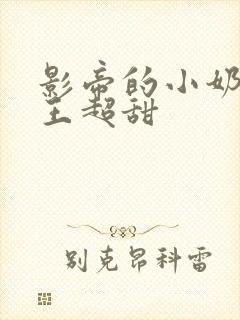 影帝的小奶
王超甜
别克昂科雷